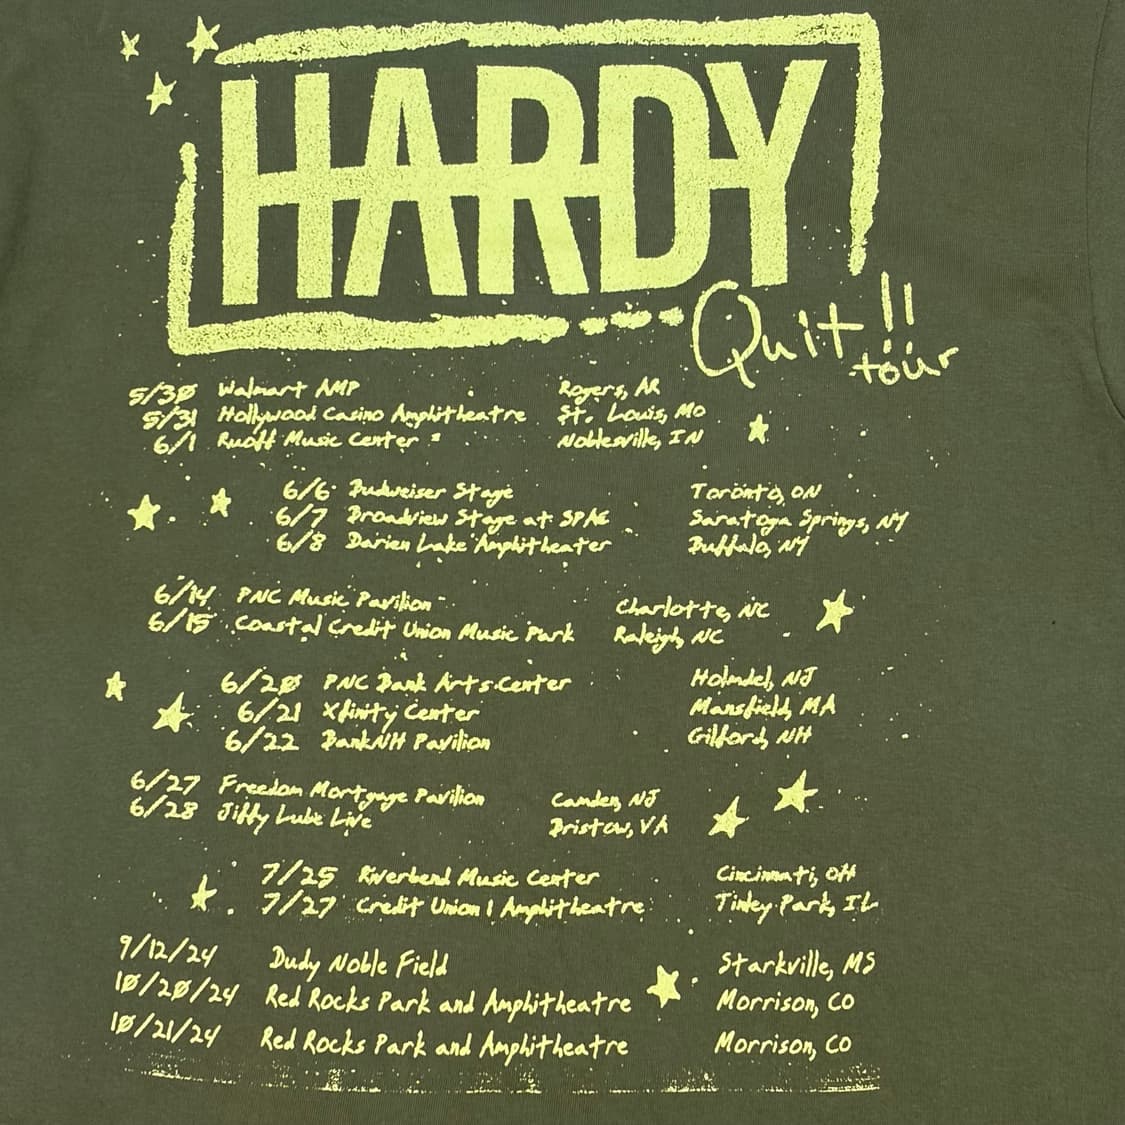 HARDY
Quit!!
tour
5/30 Walmart AMP Rogers, AR
5/31 Hollywood Casino Amphitheatre St. Louis, MO
6/1 Ruoff Music Center Noblesville, IN
6/6 Budweiser Stage Toronto, ON
6/7 Broadview Stage at SPAC Saratoga Springs, NY
6/8 Darien Lake Amphitheater Buffalo, NY
6/14 PNC Music Pavilion Charlotte, NC
6/15 Coastal Credit Union Music Park Raleigh, NC
6/20 PNC Bank Arts Center Holmdel, NJ
6/21 Xfinity Center Mansfield, MA
6/22 BankNH Pavilion Gilford, NH
6/27 Freedom Mortgage Pavilion Camden, NJ
6/28 Jiffy Lube Live Bristow, VA
7/25 Riverbend Music Center Cincinnati, OH
7/27 Credit Union 1 Amphitheatre Tinley Park, IL
9/12/24 Dudy Noble Field Starkville, MS
10/20/24 Red Rocks Park and Amphitheatre Morrison, CO
10/21/24 Red Rocks Park and Amphitheatre Morrison, CO